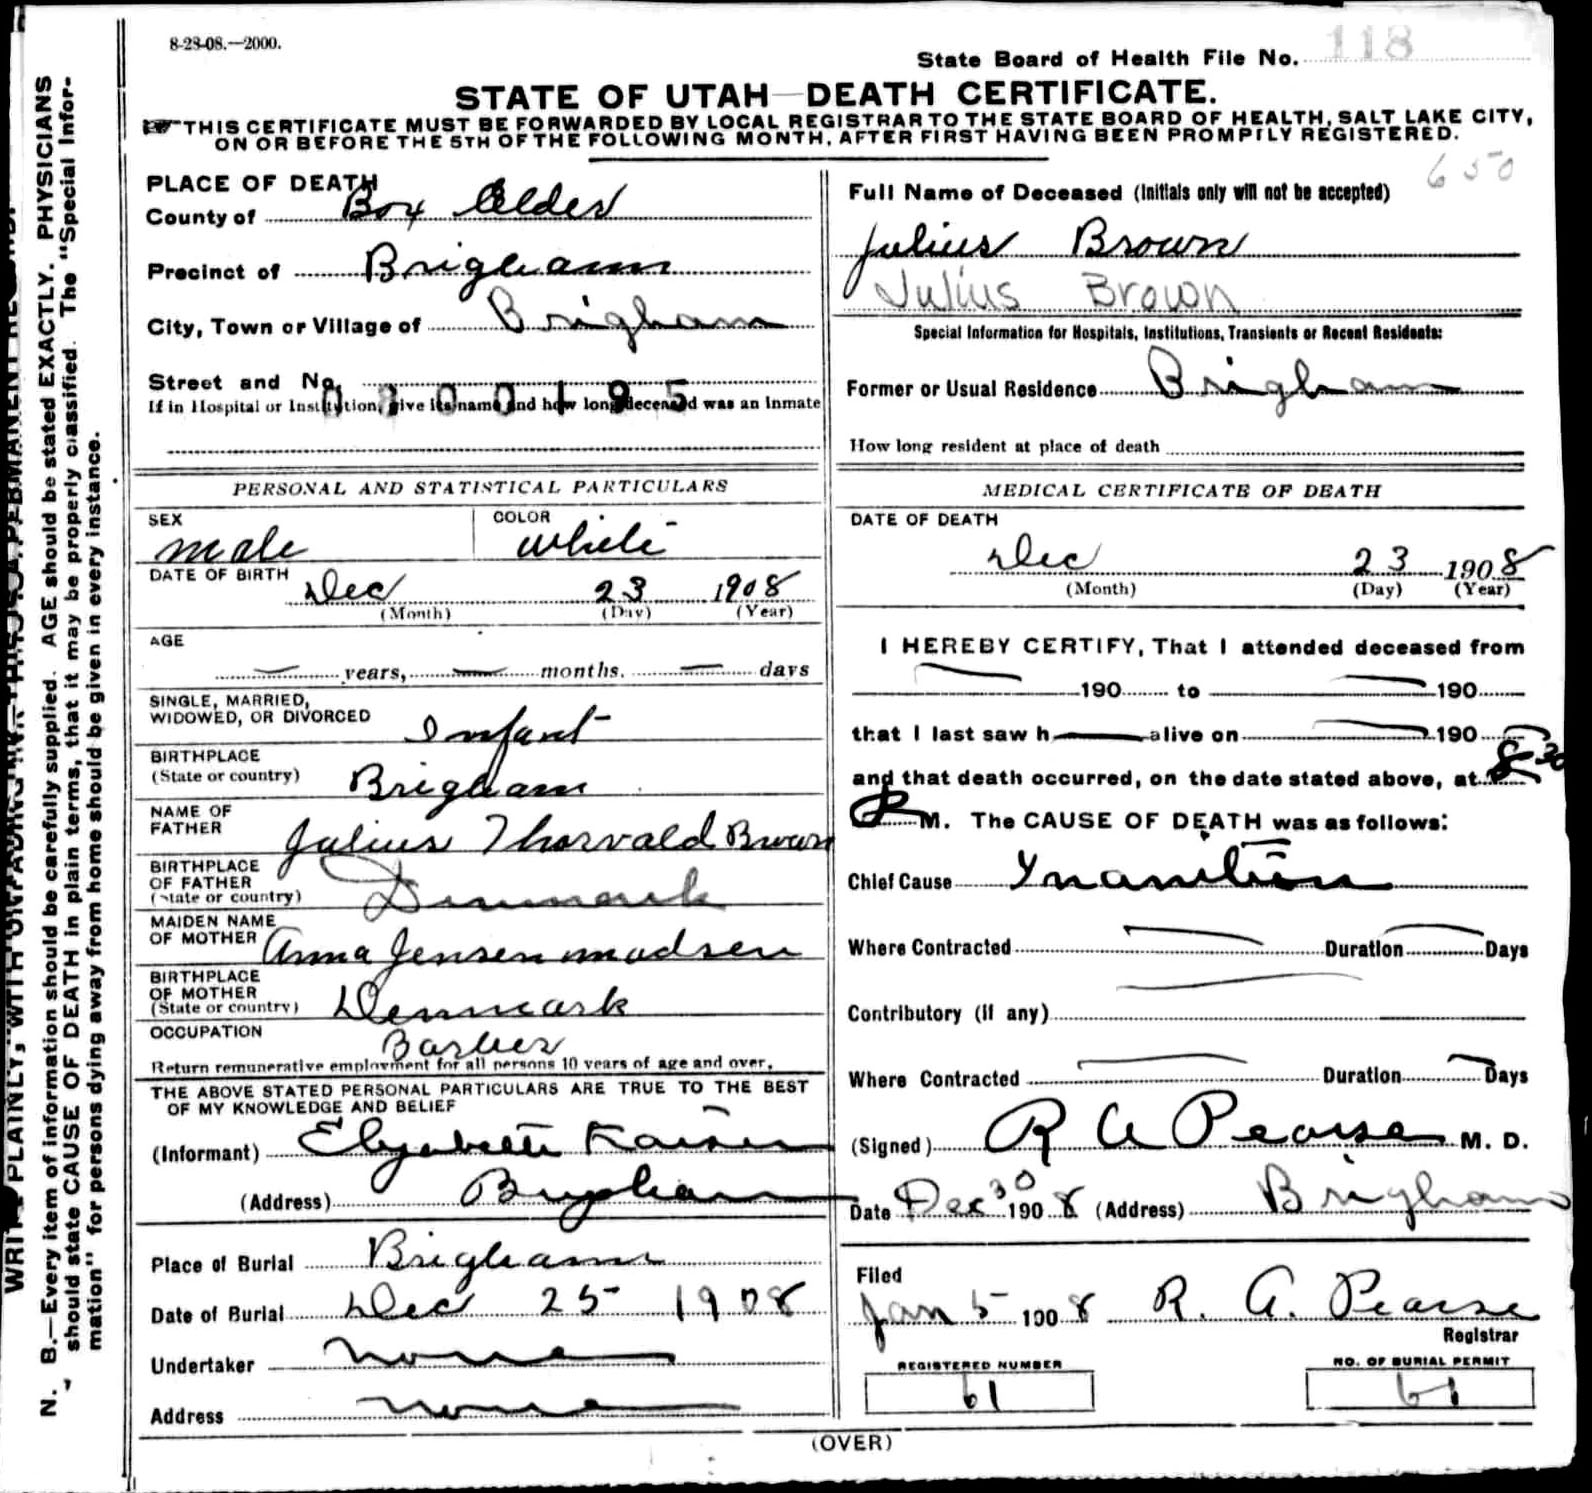 8-28-08.—2000.
State Board of Health File No. 118
STATE OF UTAH—DEATH CERTIFICATE.
THIS CERTIFICATE MUST BE FORWARDED BY LOCAL REGISTRAR TO THE STATE BOARD OF HEALTH, SALT LAKE CITY,
ON OR BEFORE THE 5TH OF THE FOLLOWING MONTH, AFTER FIRST HAVING BEEN PROMPTLY REGISTERED.
650
PLACE OF DEATH
County of Box Elder
Precinct of Brigham
City, Town or Village of Brigham
Street and No.
0300195
If in Hospital or Institution, give its name and how long deceased was an Inmate
Full Name of Deceased (Initials only will not be accepted)
Julius Brown
Julius Brown
Special Information for Hospitals, Institutions, Transients or Recent Residents:
Former or Usual Residence Brigham
How long resident at place of death
PERSONAL AND STATISTICAL PARTICULARS
SEX male COLOR white
DATE OF BIRTH Dec 23 1908
(Month) (Day) (Year)
AGE
years, months. days
SINGLE, MARRIED,
WIDOWED, OR DIVORCED Infant
BIRTHPLACE
(State or country) Brigham
NAME OF
FATHER Julius Thorvald Brown
BIRTHPLACE
OF FATHER
(State or country) Denmark
MAIDEN NAME
OF MOTHER Anna Jensen madsen
BIRTHPLACE
OF MOTHER
(State or country) Denmark
OCCUPATION Barber
Return remunerative employment for all persons 10 years of age and over.
THE ABOVE STATED PERSONAL PARTICULARS ARE TRUE TO THE BEST
OF MY KNOWLEDGE AND BELIEF
(Informant)
(Address) Brigham
Place of Burial Brigham
Date of Burial Dec 25 1908
Undertaker none
Address none
MEDICAL CERTIFICATE OF DEATH
DATE OF DEATH
Dec 23 1908
(Month) (Day) (Year)
I HEREBY CERTIFY, That I attended deceased from
190 to 190
that I last saw h alive on 190
and that death occurred, on the date stated above, at 8 30
P M. The CAUSE OF DEATH was as follows:
Chief Cause Inanition
Where Contracted Duration Days
Contributory (if any)
Where Contracted Duration Days
(Signed) R A Pearse M. D.
Date Dec 30 1908 (Address) Brigham
Filed
Jan 5 1908 R. A. Pearse
Registrar
REGISTERED NUMBER
61
NO. OF BURIAL PERMIT
61
(OVER)
N. B.—Every item of information should be carefully supplied. AGE should be stated EXACTLY. PHYSICIANS
should state CAUSE OF DEATH in plain terms, that it may be properly classified. The "Special Infor-
mation" for persons dying away from home should be given in every instance.